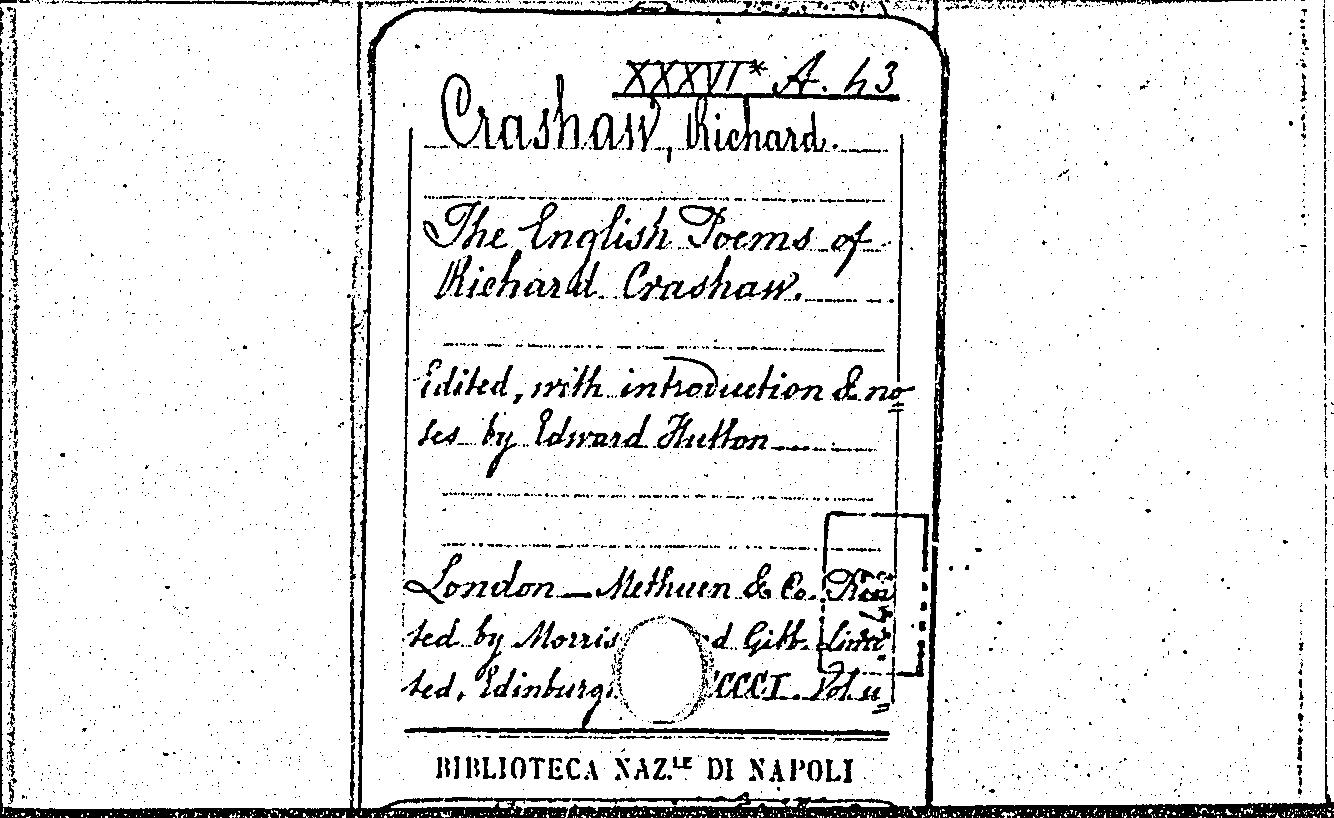 XXXVI* A. 43
Crashaw, Richard.
The English Poems of
Richard Crashaw.
Edited, with introduction & no=
tes by Edward Hutton
London — Methuen & Co.
ted by Morris d Gibb. Limi
ted, Edinburg CCCCI. Vol. u=
BIBLIOTECA NAZ.LE DI NAPOLI